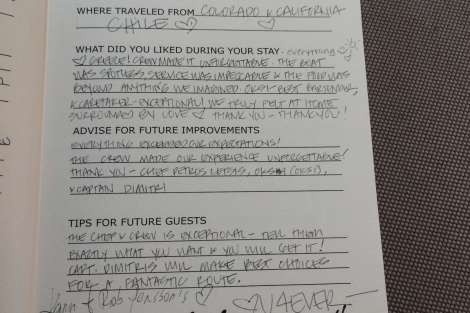 WHERE TRAVELED FROM COLORADO & CALIFORNIA
CHILE ♡ ♡
WHAT DID YOU LIKED DURING YOUR STAY - everything ♡
♡ GREECE! CREW MADE IT UNFORGETTABLE. THE BOAT
WAS SPOTLESS, SERVICE WAS IMPECCABLE & THE FOOD WAS
BEYOND ANYTHING WE IMAGINED. OKSI BEST BARTENDER,
& CARETAKER - EXCEPTIONAL! WE TRULY FELT AT HOME
SURROUNDED BY LOVE ♡ THANK YOU - THANK YOU!
ADVISE FOR FUTURE IMPROVEMENTS
EVERYTHING EXCEEDED OUR EXPECTATIONS!
THE CREW MADE OUR EXPERIENCE UNFORGETTABLE!
THANK YOU - CHEF PETROS (OKSI),
& CAPTAIN DIMITRI
TIPS FOR FUTURE GUESTS
THE CHEF & CREW IS EXCEPTIONAL - TELL THEM
EXACTLY WHAT YOU WANT & YOU WILL GET IT!
CAPT. DIMITRIS WILL MAKE BEST CHOICES
FOR A FANTASTIC ROUTE.
& Rob ♡ ♡ U 4EVER